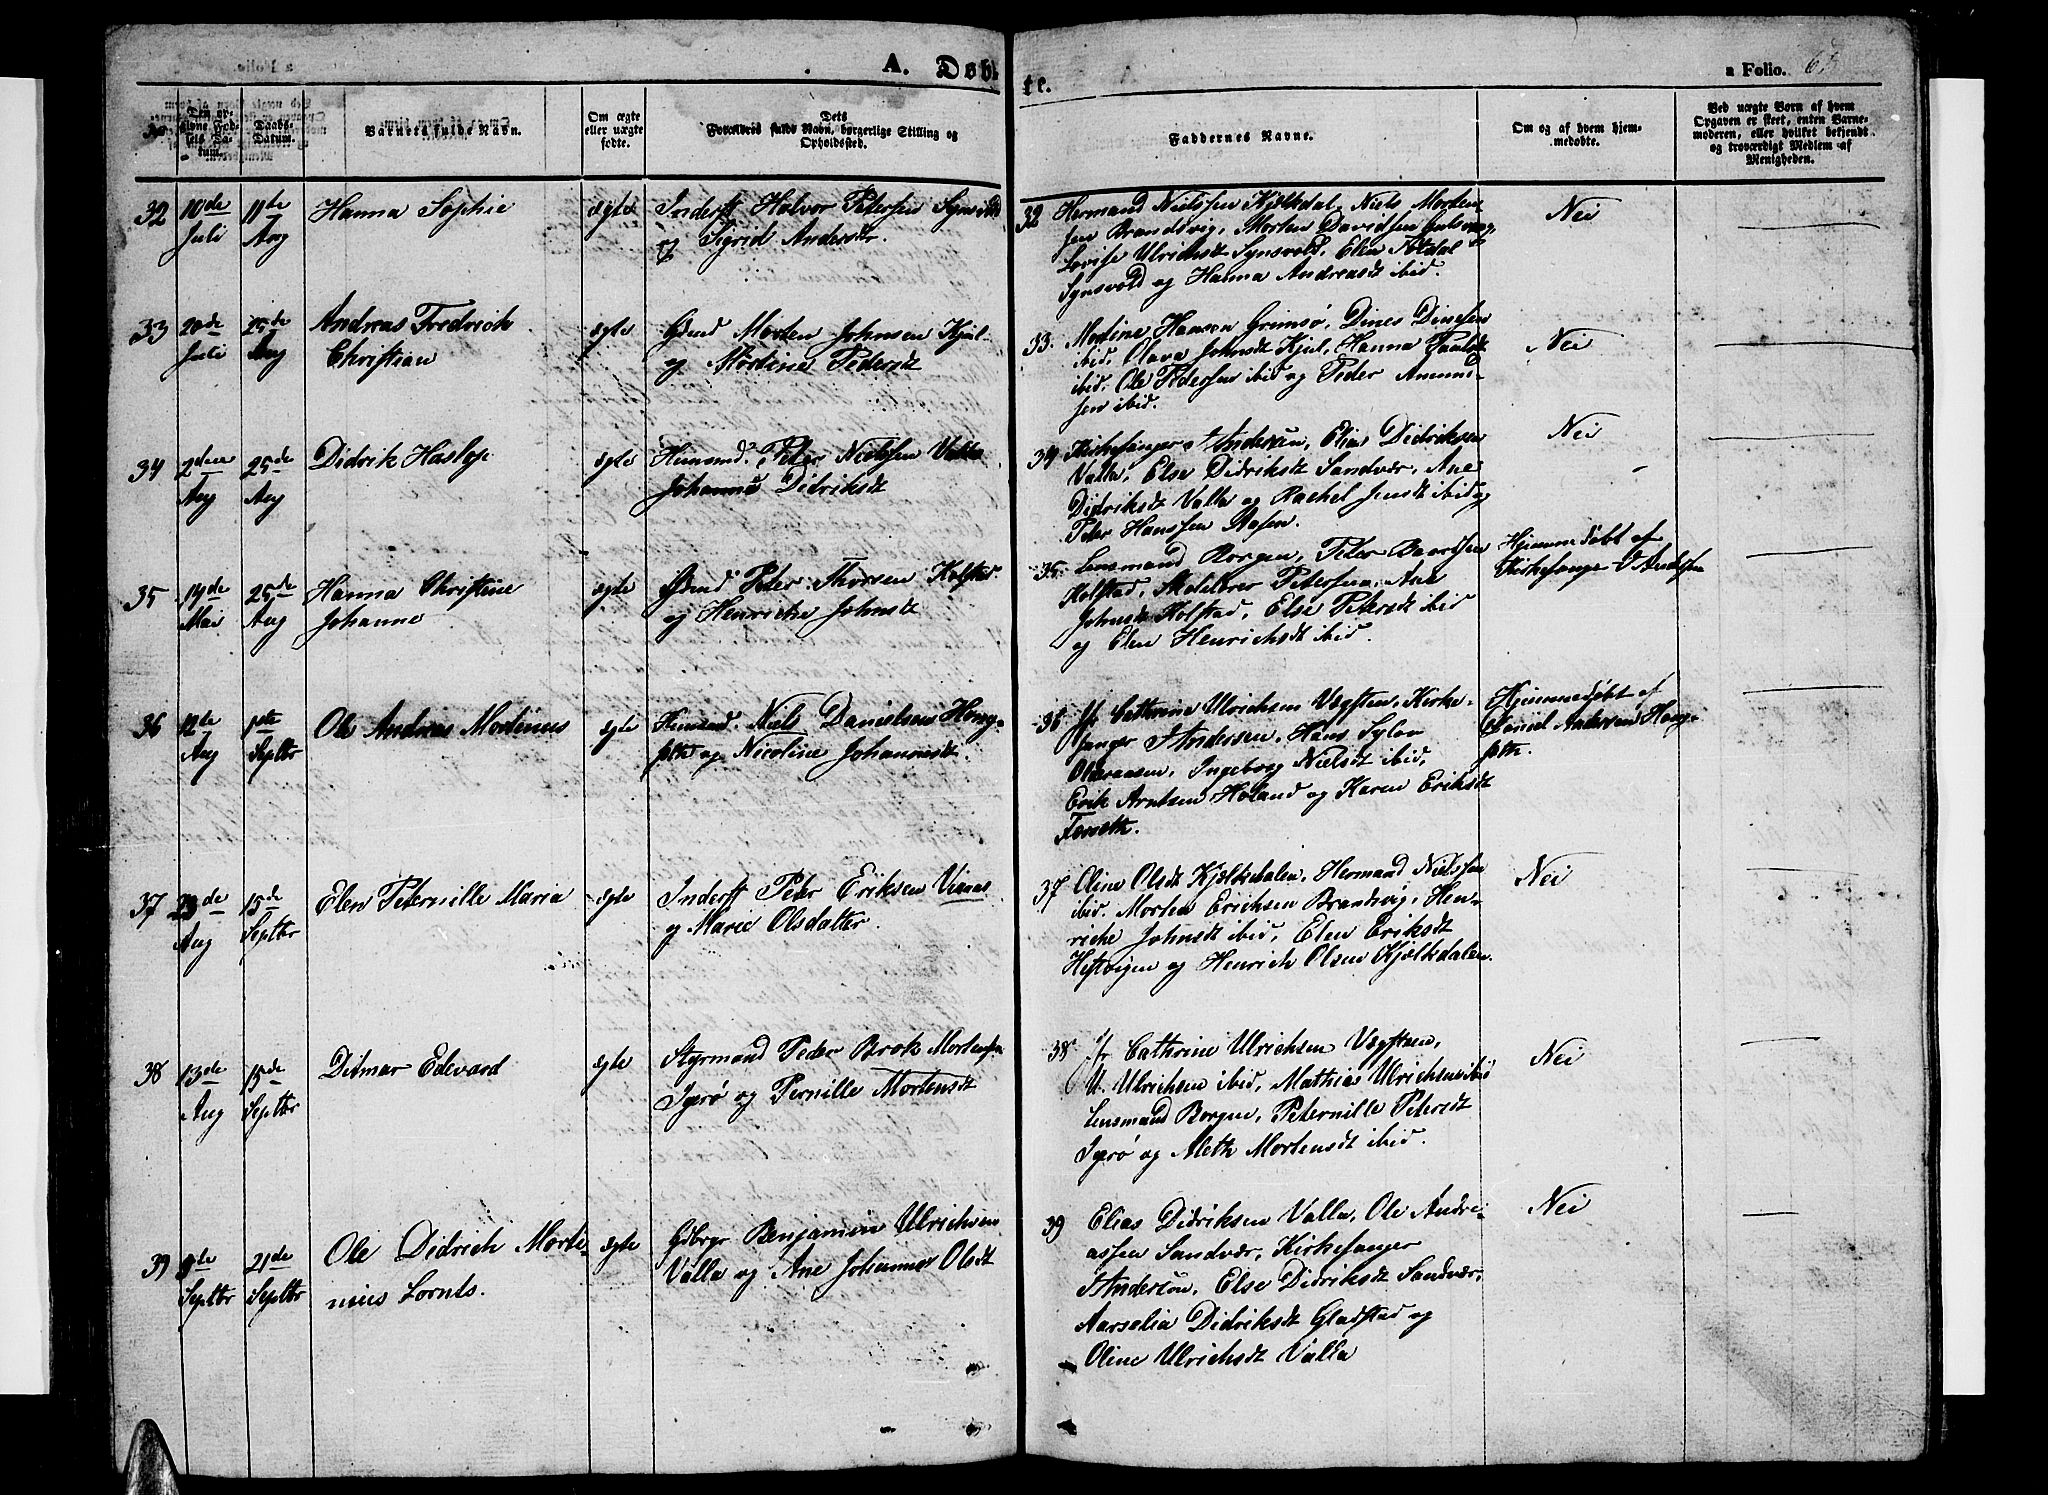 A. Døbte.
a Folio. 65
Den opgivne Fødsels Datum.
Daabs-Datum.
Barnets fulde Navn.
Om ægte eller uægte fødte.
Dets Forældres fulde Navn, borgerlige Stilling og Opholdssted.
Faddernes Navne.
Om og af hvem hjemmedøbte.
Ved uægte Børn af hvem Opgaven er skeet, enten Barnemoderen, eller hvilket bekjendt og troværdigt Medlem af Menigheden.
32 10de Juli 11te Aug Hanna Sophie ægte
Inderst Halvor Petersen
og Sigrid Andersdr.
32 Hermand Nielssen Kjelkdal, Niels Morten-
sen Brandsvig, Morten Davidsen
Lovise Ulrichsdt Synsvold, Elen
Synsvold og Hanna Andreasdt ibid.
Nei
33 20de Juli 25de Aug Andreas Fredrich
Christian
ægte
Gbmd Morten Johnsen Kjul-
og Martine Pedersdt
33. Martine Hansen Grimsø, Dines Dinesen
ibid, Olava Johnsdt Kjul, Hanna Paulsdt
ibid, Ole Pedersen ibid og Peder Amund-
sen ibid.
Nei
34 2den Aug 25de Aug Didrik Haslop ægte
Huusmd. Peter Nielssen Valla
Johanna Didriksdt
34 Kirkesanger Andersen, Elias Didriksen
Valla, Else Didriksdt Sandvær, Ane
Didriksdt Valla og Rachel Jensdt ibid og
Peter Hanssen Stasen.
Nei
35 19de Mai 25de Aug Hanna Christine
Johanne
ægte
Gbmd Peter Thorsen Kolstad
og Henriche Johnsdt
35. Lensmand Borgen, Peter Baardsen
Kolstad, Petersen, Ane
Johnsdt Kolstad, Else Petersdt ibid
og Elen Henrichsdt ibid.
Hjemmedøbt af
Kirkesanger Andersen
36 12te Aug 1ste Septbr Ole Andreas Mortinus ægte
Huusmd. Niels Danielsen Høng-
og Nicoline Johannesdt.
36 Jfr Cathrine Ulrichsen Vægsten, Kirke-
sanger Andersen, Hans Sylov
Ingeborg Nielsdt ibid,
Erik Arntsen Høland og Karen Eriksdt
Hjemmedøbt af
Daniel Andersen Høng-
37 23de Aug 15de Septbr Elen Peternille Maria ægte
Inderst Peter Eriksen Visnes
og Marie Olsdatter.
37 Oline Olsdt Kjælkdalen, Hermand Nielssen
ibid. Morten Erichsen Brandsvig, Hen-
riche Johnsdt ibid, Elen Eriksdt
Hestvigen og Henrich Olsen Kjælkdalen.
Nei
38 13de Aug 15de Septbr Ditmar Edevard ægte
Styrmand Peder Brok Mortensen
Igerø og Pernille Mortensdt
38 Jfr Cathrine Ulrichsen Vægstsen,
U. Ulrichsen ibid, Mathias Ulrichsen ibid
Lensmand Borgen, Peternille Petersdt
Igerø og Aleth Mortensdt ibid.
Nei
39 9de Septbr 21de Septbr Ole Didrich Morti-
nius Lornts.
ægte
Gdbrgr Benjamin Ulrichsen
Valla og Ane Johanna Olsdt
39 Elias Didriksen Valla, Ole Andre-
assen Sandvær, Kirkesanger
Andersen, Else Didriksdt Sandvær,
Aarselia Didriksdt Gladstad og
Oline Ulrichsdt Valla
Nei